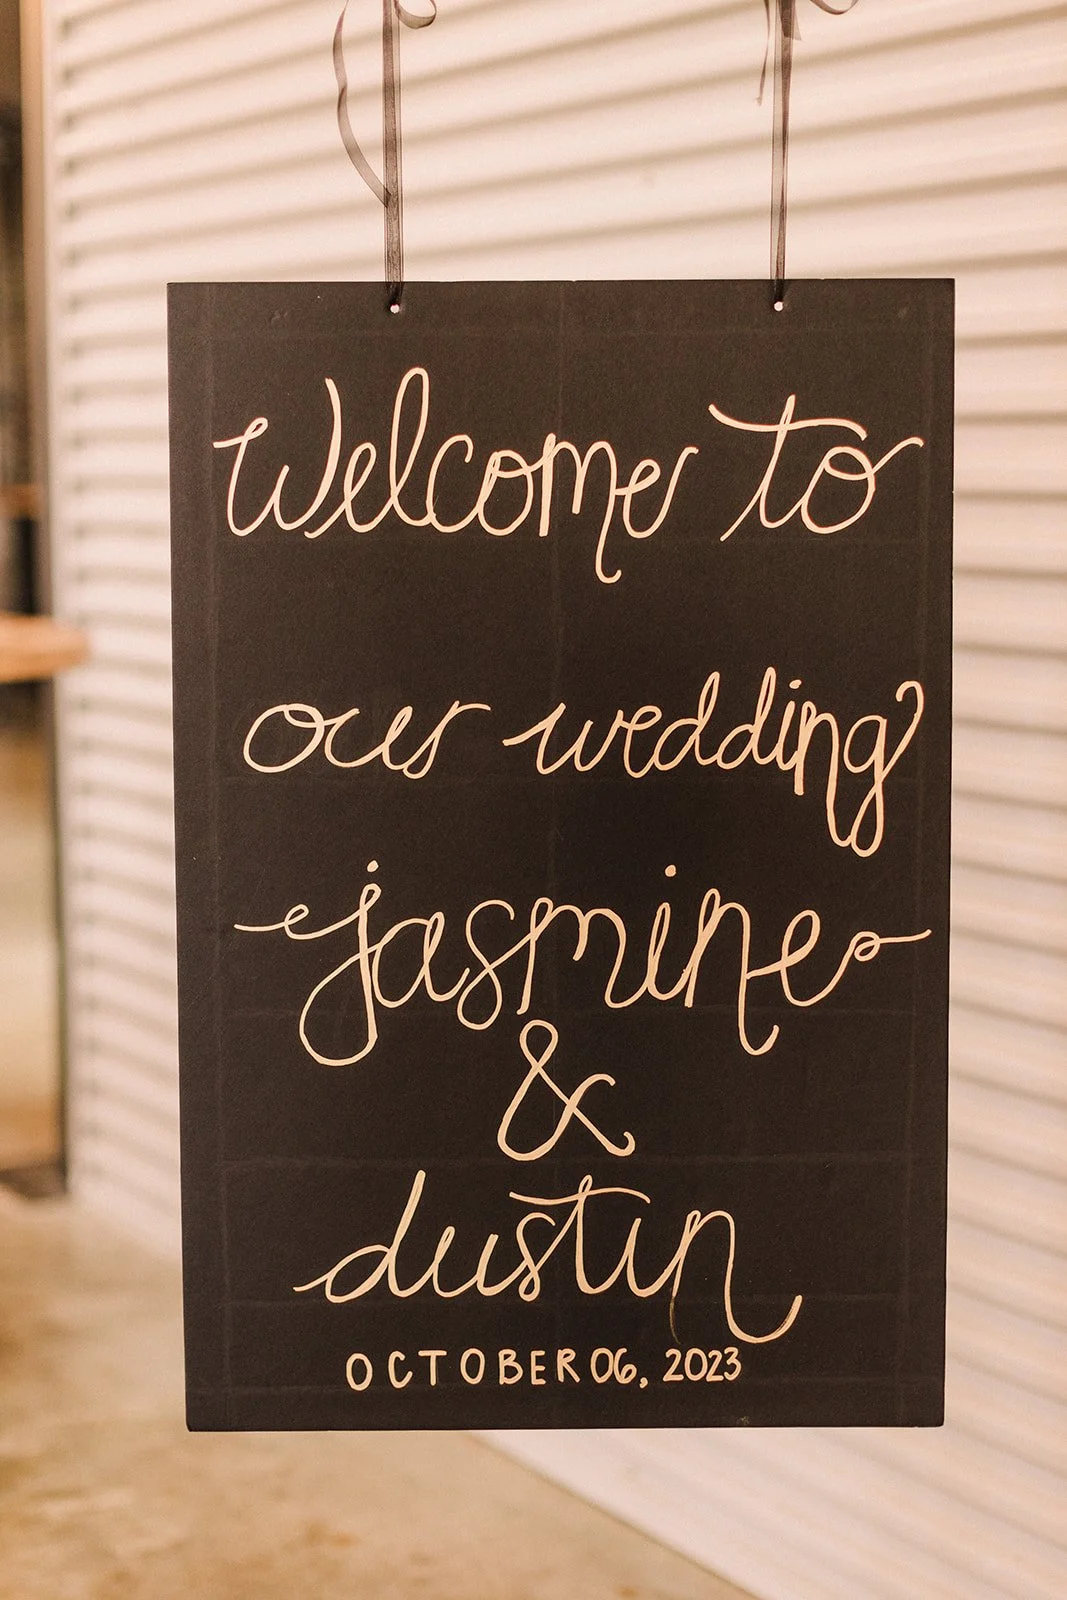 Welcome to
our wedding
jasmine
&
dustin
OCTOBER 06, 2023